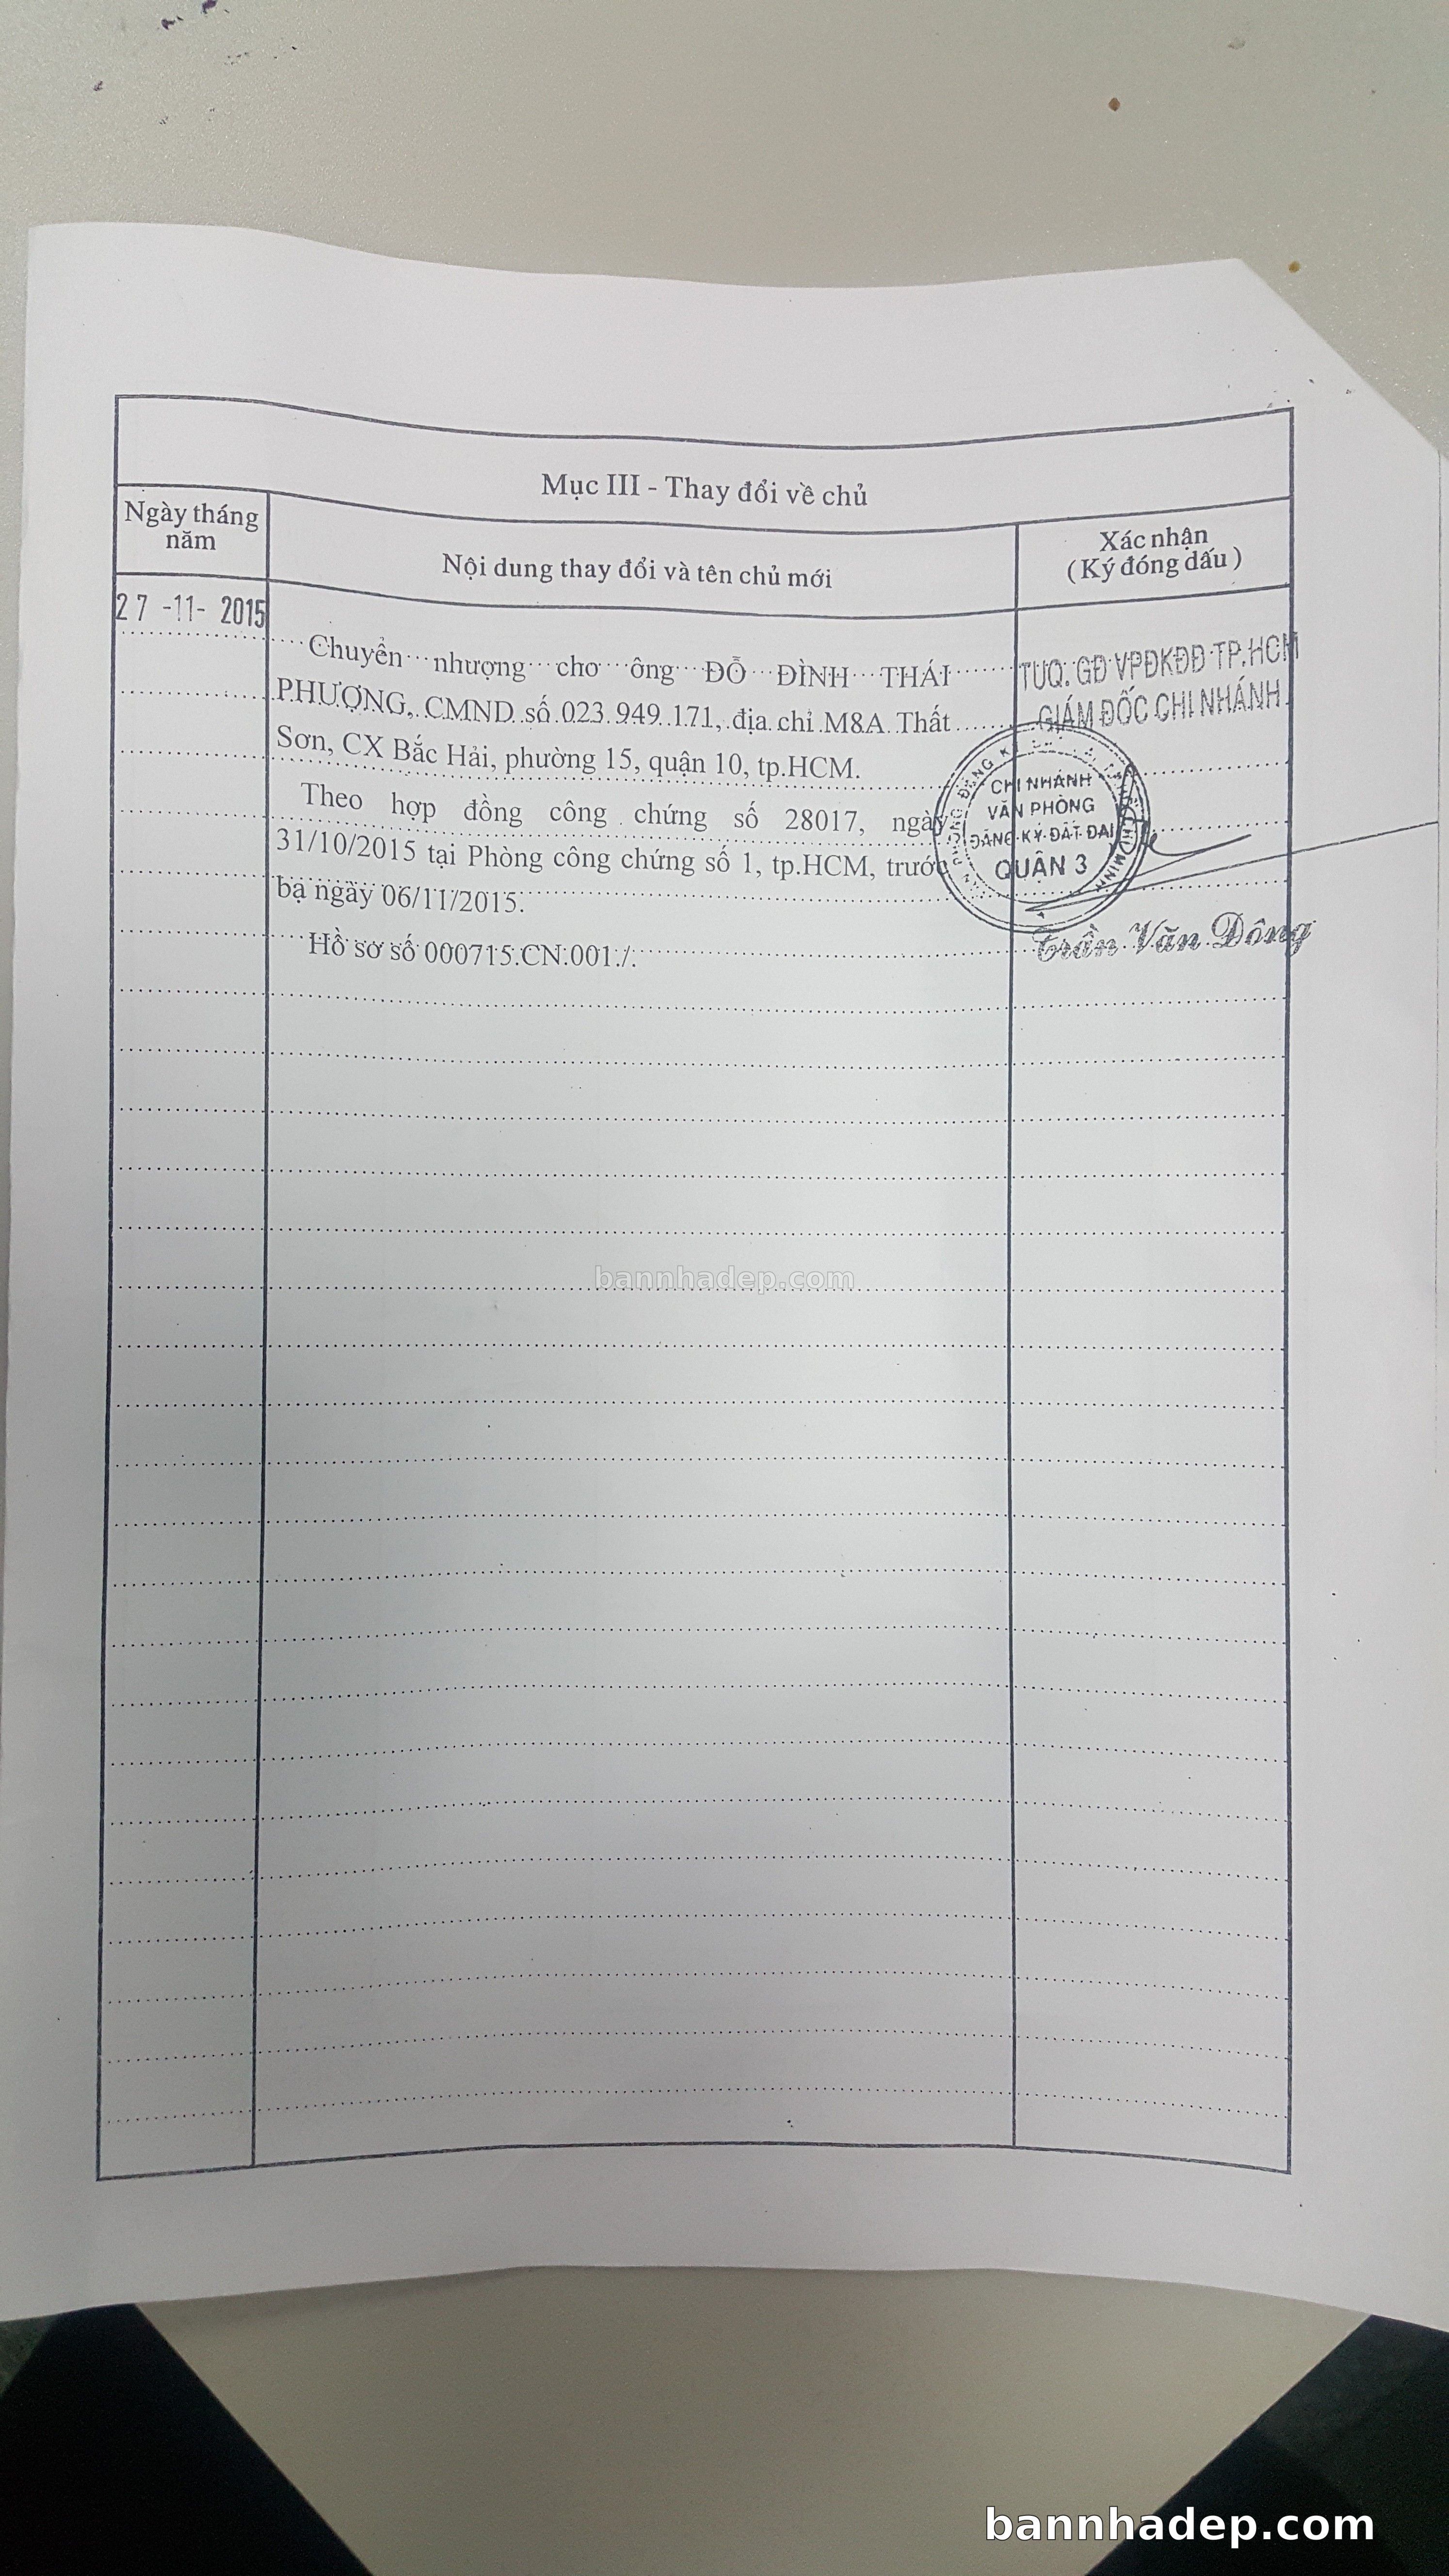 Mục III - Thay đổi về chủ
Ngày tháng
năm
Nội dung thay đổi và tên chủ mới
Xác nhận
(Ký đóng dấu)
27 -11- 2015
Chuyển nhượng cho ông ĐỖ ĐÌNH THÁI
PHƯỢNG, CMND số 023 949 171, địa chỉ M8A Thất
Sơn, CX Bắc Hải, phường 15, quận 10, tp.HCM.
Theo hợp đồng công chứng số 28017, ngày
31/10/2015 tại Phòng công chứng số 1, tp.HCM, trước
bạ ngày 06/11/2015.
Hồ sơ số 000715.CN.001./.
TUQ. GĐ VPĐKĐĐ TP.HCM
GIÁM ĐỐC CHI NHÁNH
CHI NHÁNH
VĂN PHÒNG
ĐĂNG KÝ ĐẤT ĐAI
QUẬN 3
Trần Văn Dông
bannhadep.com
bannhadep.com